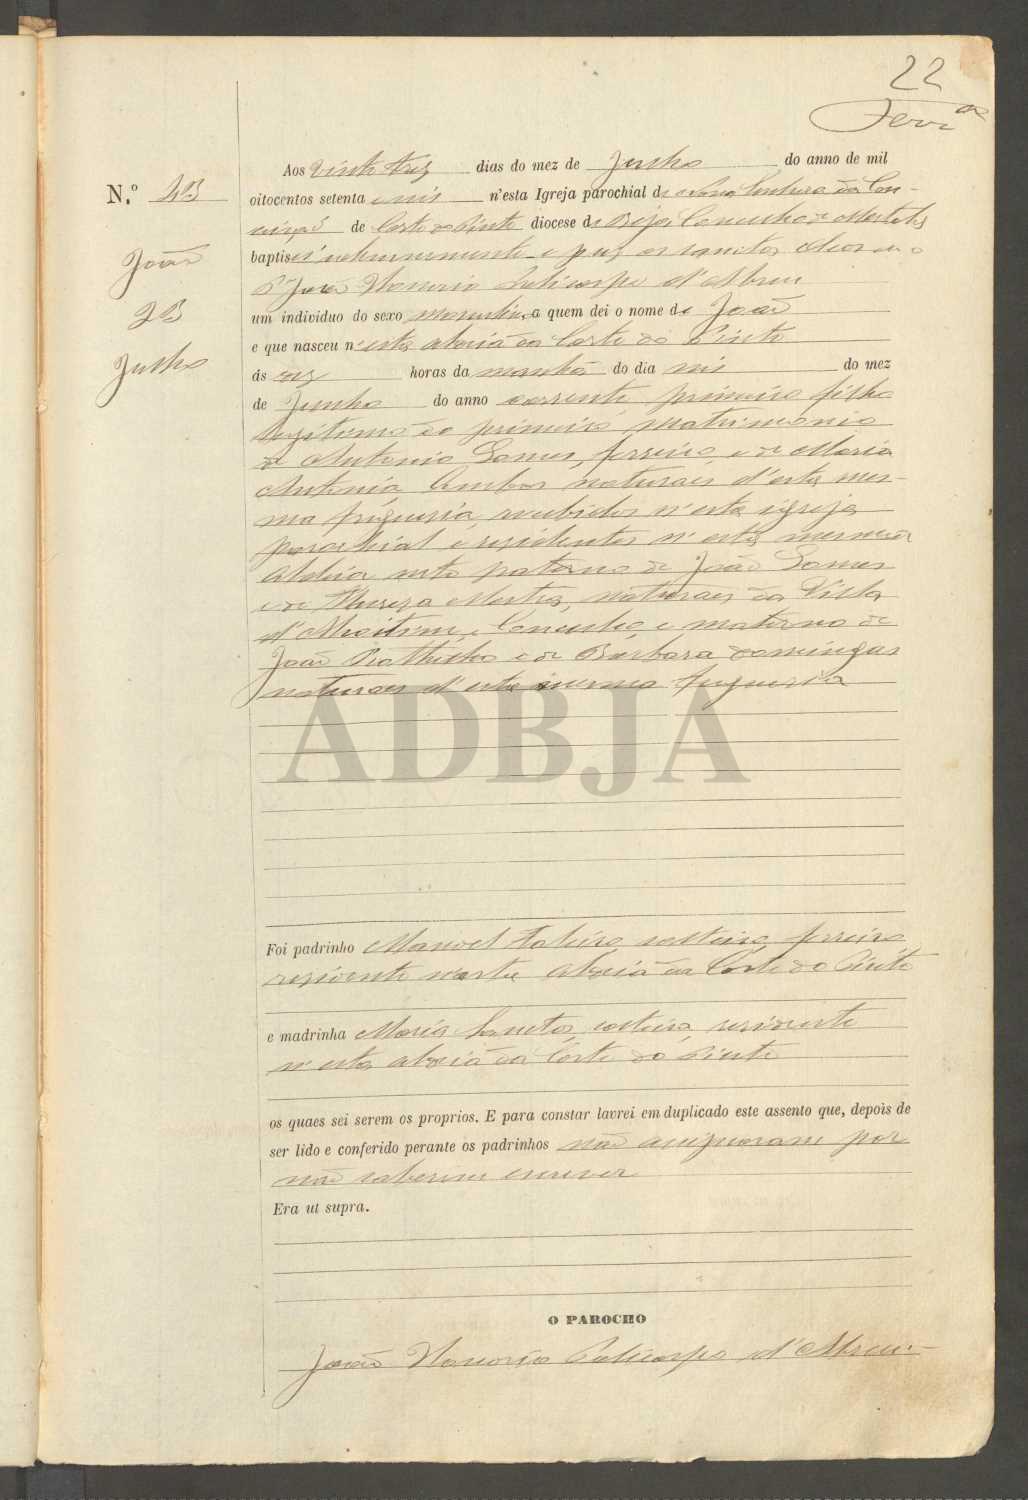 22
Aos vinte trez dias do mez de Junho do anno de mil
N.º 43 oitocentos setenta e seis n'esta Igreja parochial de Nossa Senhora da Con-
ceição de Corte do Pinto diocese de Beja, Concelho de Mertola
João baptisei solemnemente e puz os santos oleos eu o
P.e João Honorio Policarpo d'Abreu
23 um individuo do sexo masculino a quem dei o nome de João
e que nasceu n'esta aldeia da Corte do Pinto
Junho ás dez horas da manhã do dia seis do mez
de Junho do anno corrente primeiro filho
legitimo do primeiro matrimonio
de Antonio Lames, ferreiro, e de Maria
Antonia, Ambos naturaes d'esta mes-
ma freguesia, recebidos n'esta igreja
parochial e residentes n'esta mesma
aldeia neto paterno de João Lames
e de Thereza Mestra, naturaes da Villa
d'Alcoitim, Concelho e materno de
João e de Barbara Domingas
naturaes d'esta mesma freguesia
ADBJA
Foi padrinho Manoel solteiro, ferreiro
residente n'esta aldeia da Corte do Pinto
e madrinha Maria solteira, residente
n'esta aldeia da Corte do Pinto
os quaes sei serem os proprios. E para constar lavrei em duplicado este assento que, depois de
ser lido e conferido perante os padrinhos não assignaram por
não saberem escrever
Era ut supra.
O PAROCHO
João Honorio Policarpo d'Abreu